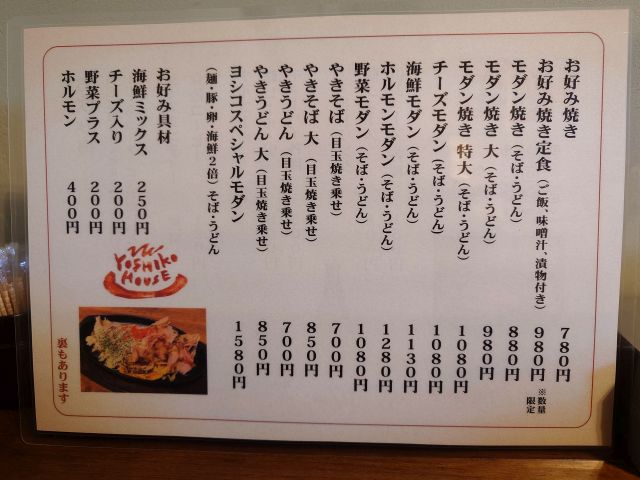 お好み焼き 780円
お好み焼き定食(ご飯、味噌汁、漬物付き) 980円 ※数量限定
モダン焼き(そば・うどん) 880円
モダン焼き 大(そば・うどん) 980円
モダン焼き 特大(そば・うどん) 1080円
チーズモダン(そば・うどん) 1080円
海鮮モダン(そば・うどん) 1130円
ホルモンモダン(そば・うどん) 1280円
野菜モダン(そば・うどん) 1080円
やきそば(目玉焼き乗せ) 700円
やきそば 大(目玉焼き乗せ) 850円
やきうどん(目玉焼き乗せ) 700円
やきうどん 大(目玉焼き乗せ) 850円
ヨシコスペシャルモダン 1580円
(麺・豚・卵・海鮮2倍)そば・うどん
お好み具材
海鮮ミックス 250円
チーズ入り 200円
野菜プラス 200円
ホルモン 400円
YOSHIKO
HOUSE
裏もあります